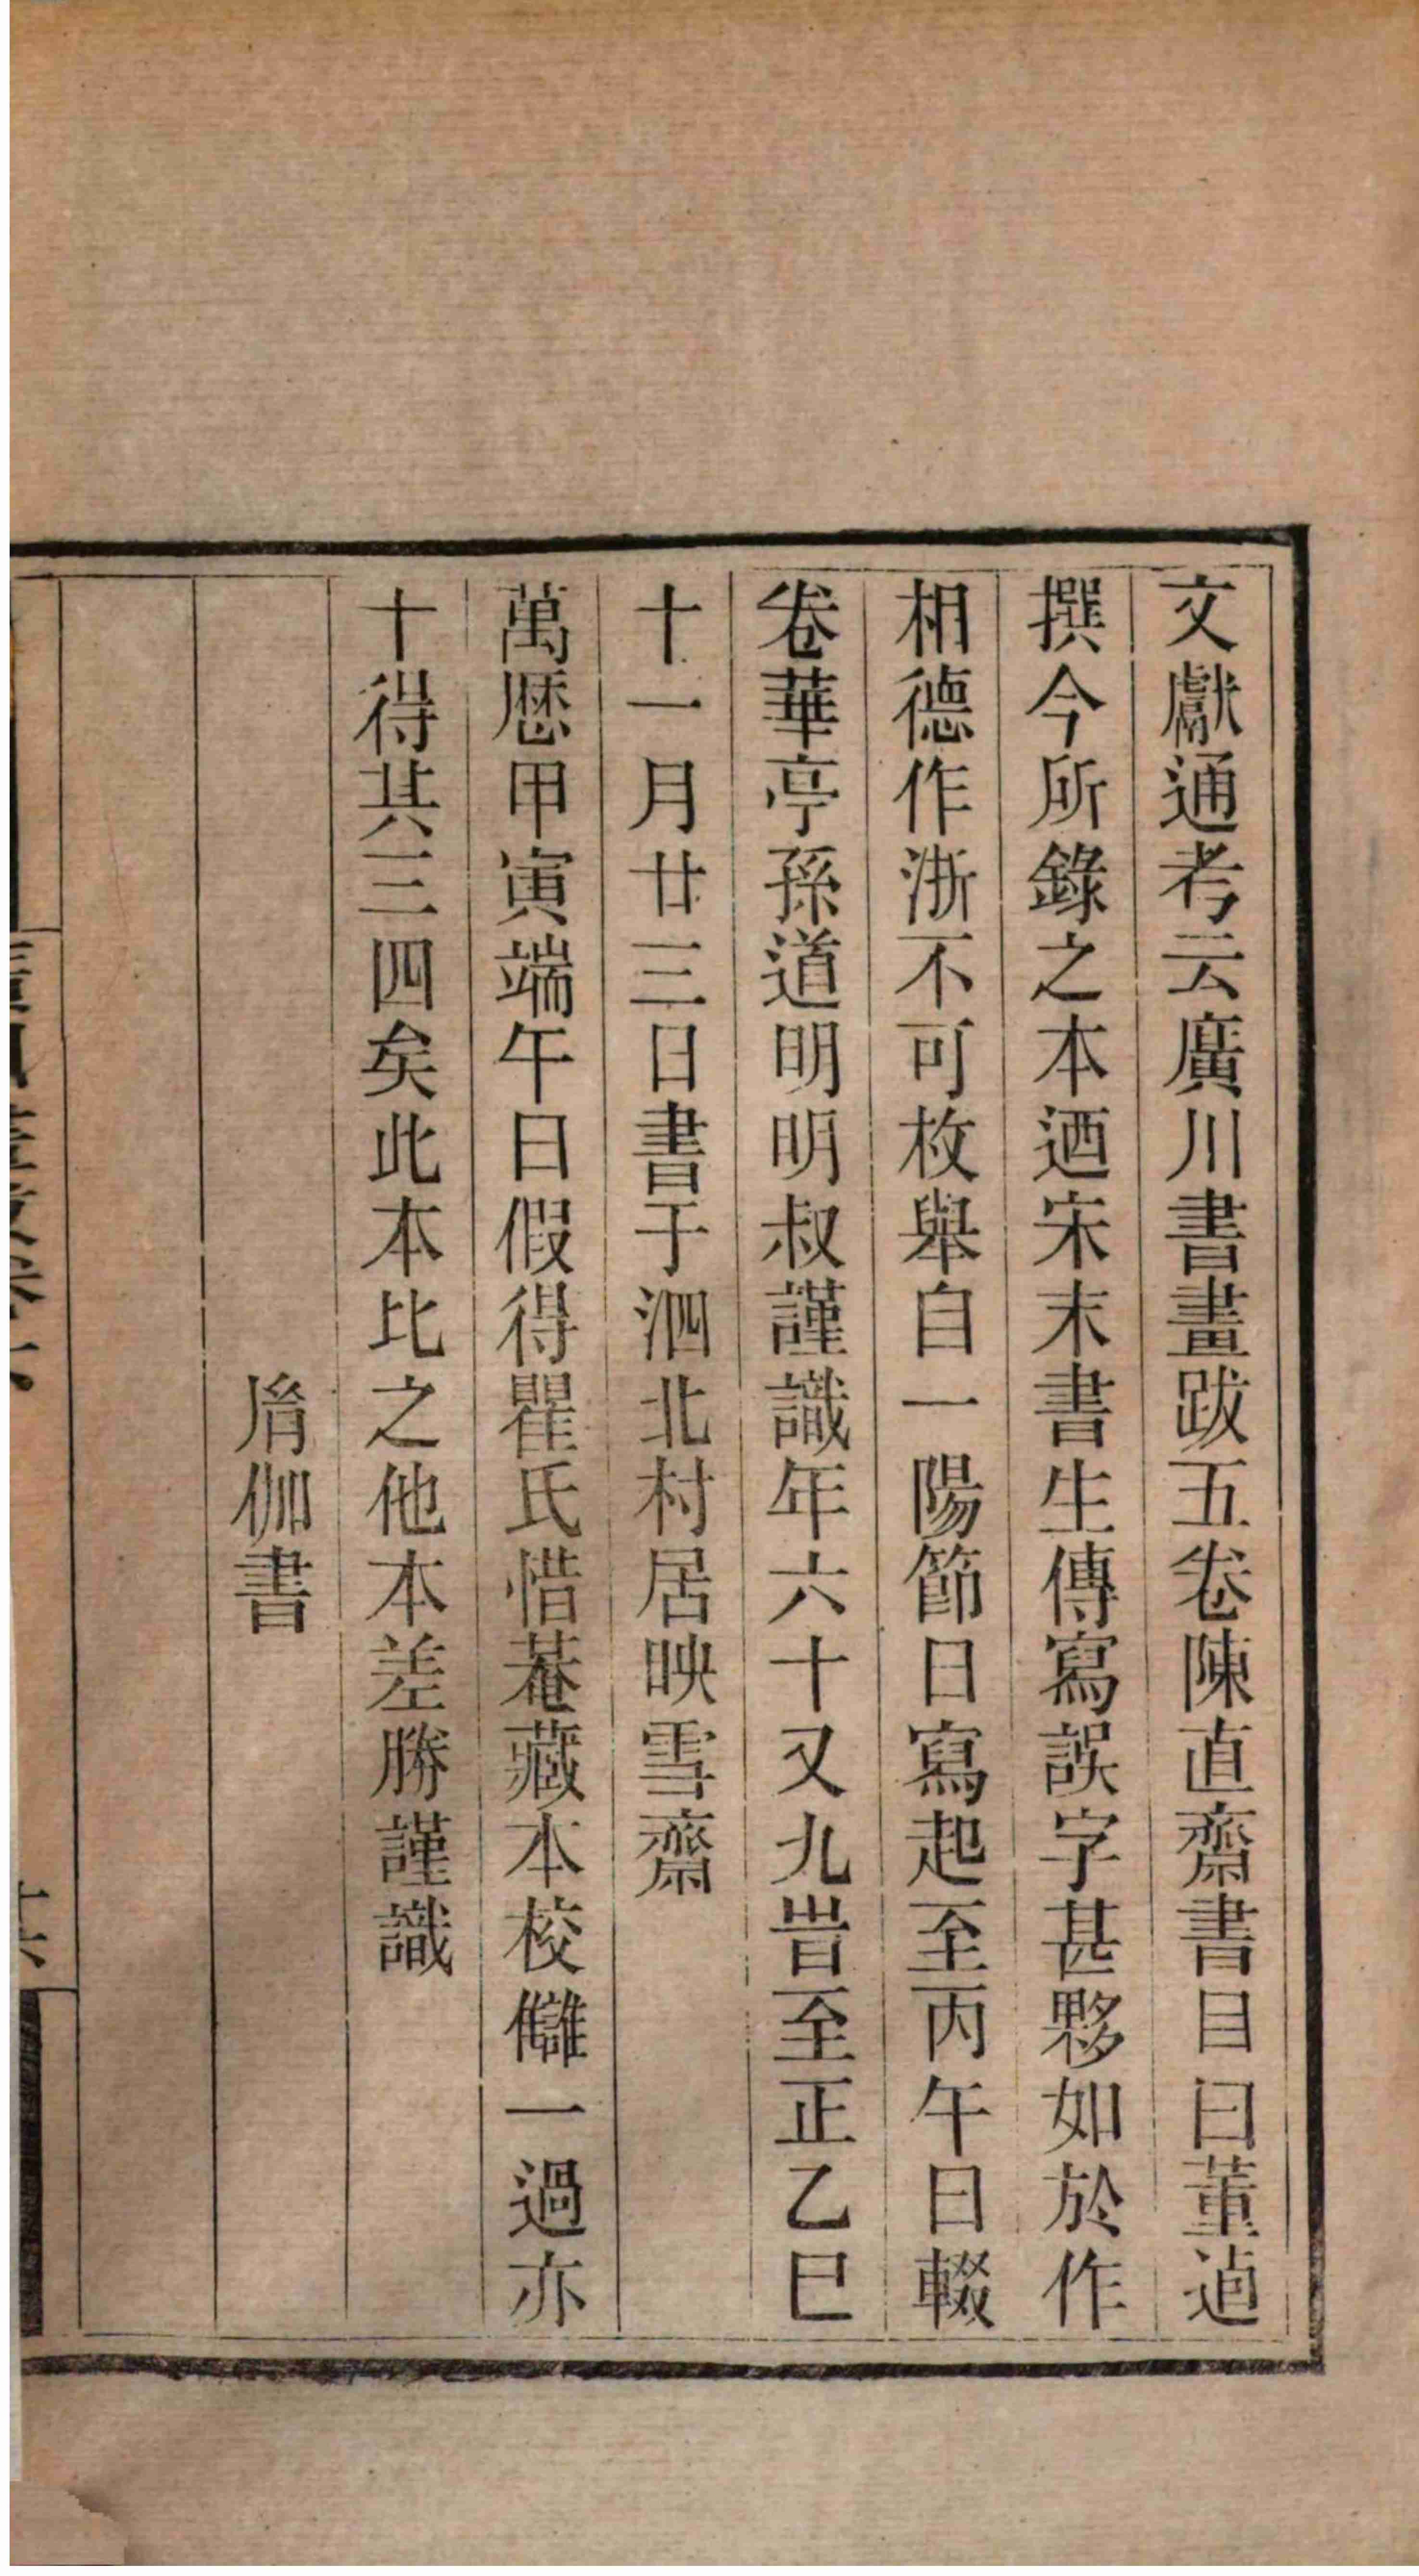 文獻通考云廣川書畫跋五卷陳直齋書目曰董逌
撰今所錄之本迺宋末書生傳寫誤字甚夥如於作
相德作浙不可枚舉自一陽節日寫起至丙午日輟
卷華亭孫道明明叔謹識年六十又九旹至正乙巳
十一月廿三日書于泗北村居映雪齋
萬歷甲寅端午日假得瞿氏惜菴藏本校讎一過亦
十得其三四矣此本比之他本差勝謹識
伽書